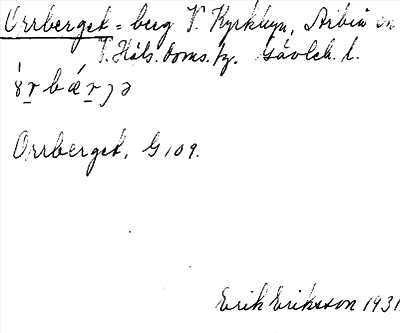 Orrberget = berg V. Kyrkbyn, Arbrå sn
V. Häls. doms. fg. Gävleb. l.
Orrberget, G 109.
Erik Eriksson 1931.